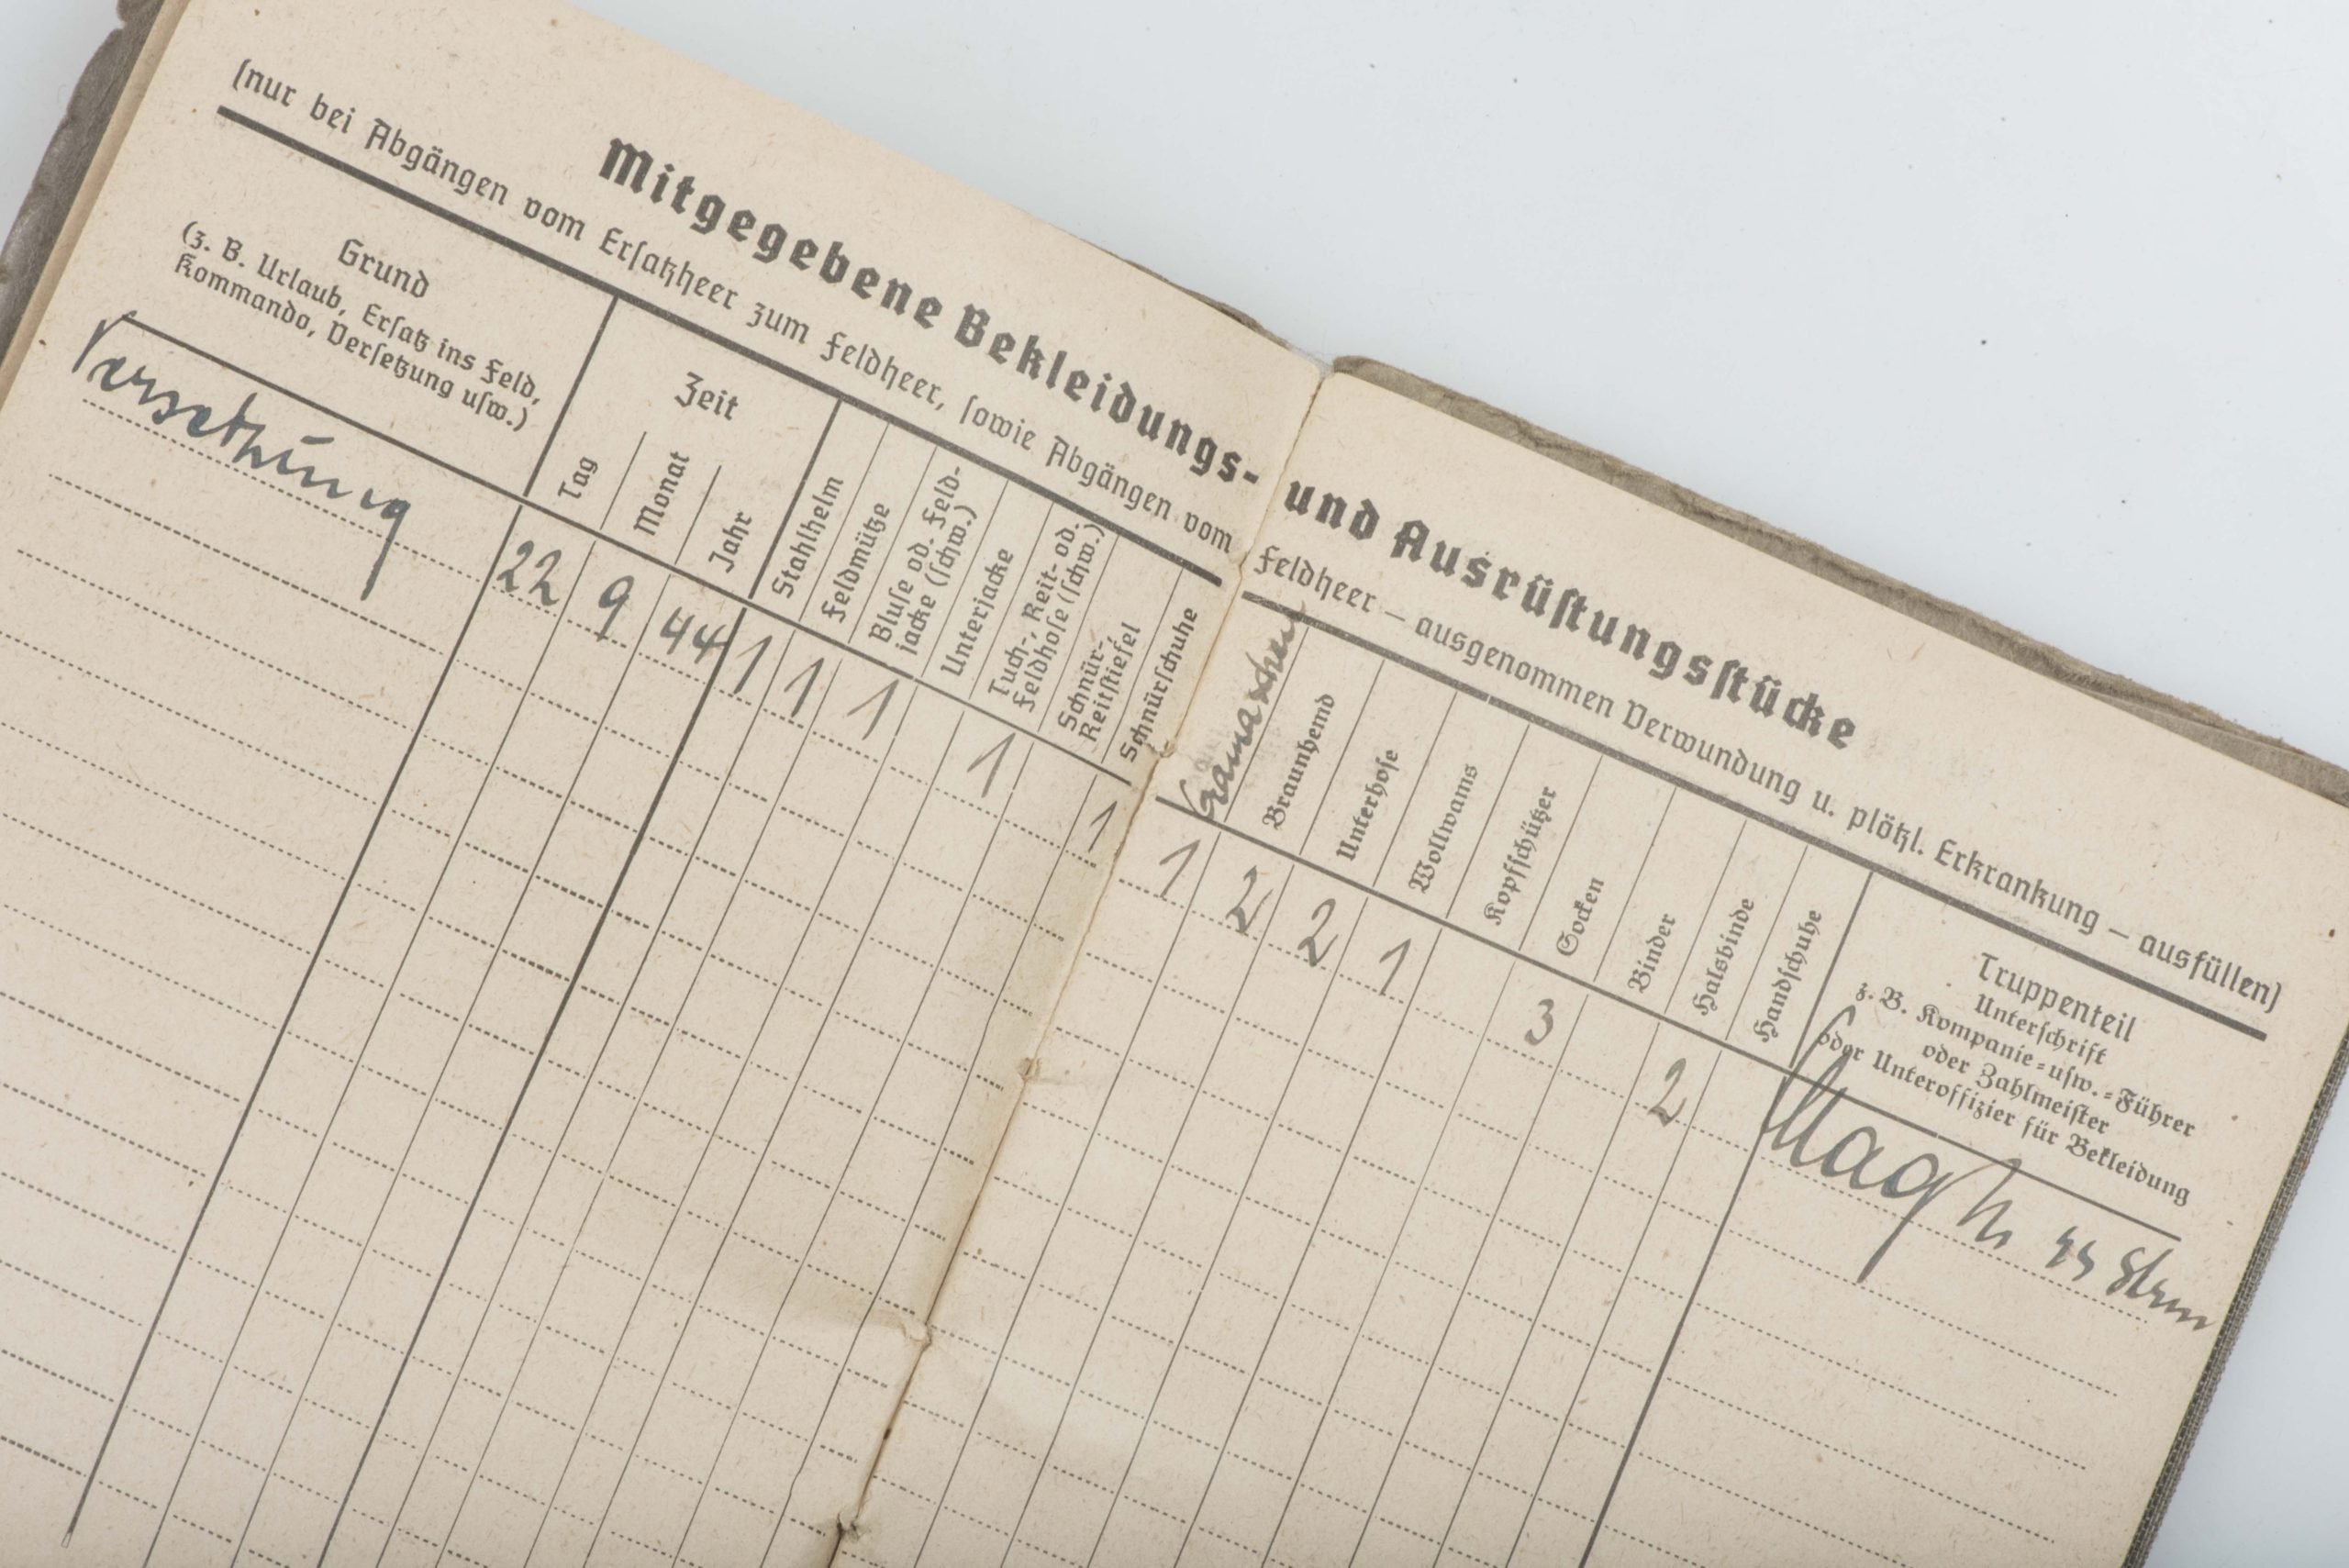 Mitgegebene Bekleidungs- und Ausrüstungsstücke
(nur bei Abgängen vom Ersatzheer zum Feldheer, sowie Abgängen vom Feldheer — ausgenommen Verwundung u. plötzl. Erkrankung — ausfüllen)
Grund
(z. B. Urlaub, Ersatz ins Feld,
Kommando, Versetzung usw.)
Zeit
Tag
Monat
Jahr
Stahlhelm
Feldmütze
Bluse od. Feld-
jacke (schw.)
Unterjacke
Tuch-, Reit- od.
Feldhose (schw.)
Schnür-,
Reitstiefel
Schnürschuhe
Gamaschen
Braunhemd
Unterhose
Wollwams
Kopfschützer
Socken
Binder
Halsbinde
Handschuhe
Truppenteil
Unterschrift
z. B. Kompanie-usw.-Führer
oder Zahlmeister
oder Unteroffizier für Bekleidung
Versetzung 22 9 44 1 1 1 1 1 1 2 2 1 3 2